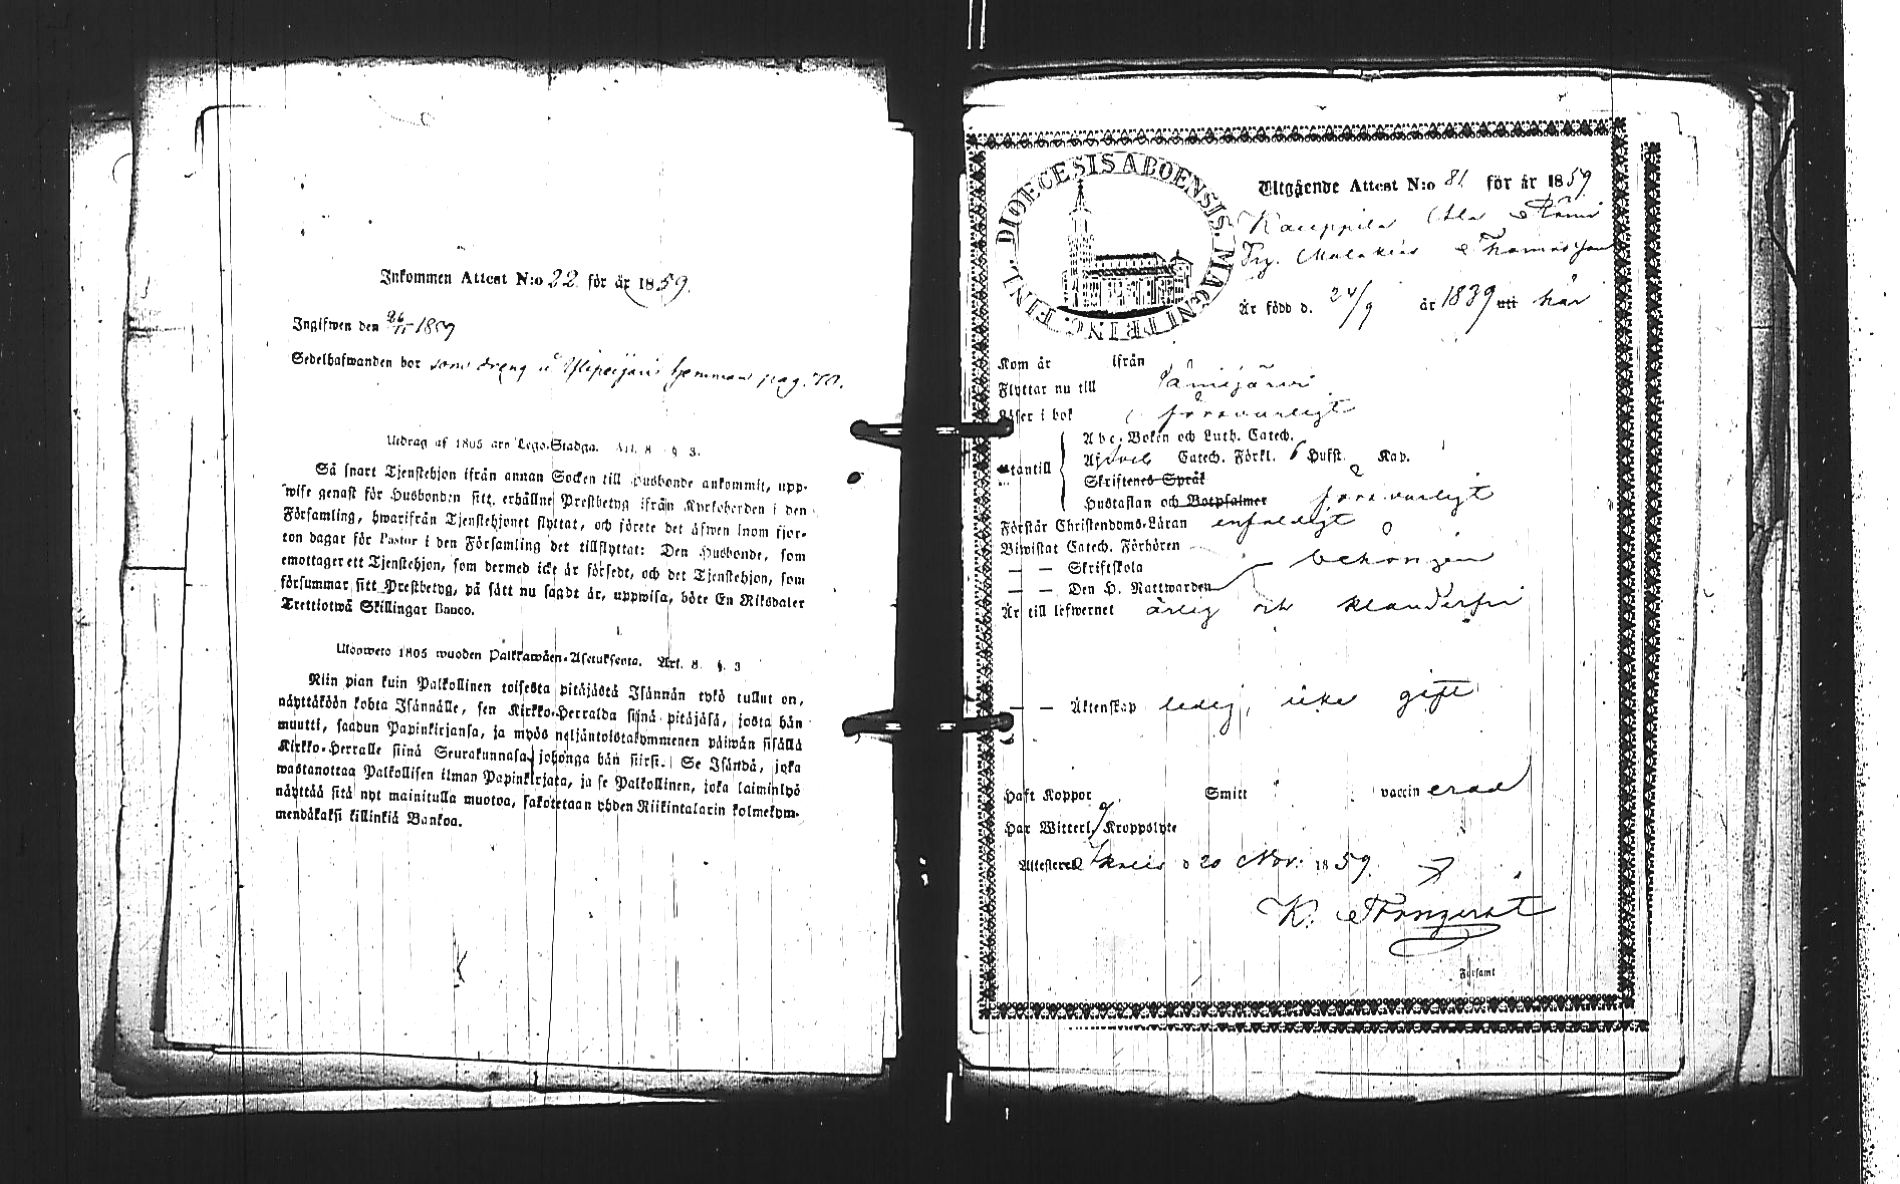 Inkommen Attest N:o 22 för år 1859.
Ingifwen den 26/11 1859
Sedelhafwanden bor som dreng å hemman pag.
Utdrag af 1805 års Lego-Stadga. Art. 8 § 3.
Så snart Tjenstehjon ifrån annan Socken till Husbonde ankommit, upp-
wise genast för Husbonden sitt erhållne Prestbetyg ifrån Kyrkoherden i den
Församling, hwarifrån Tjenstehjonet flyttat, och förete det äfwen inom fjor-
ton dagar för Pastor i den Församling det tillflyttat: Den Husbonde, som
emottager ett Tjenstehjon, som dermed icke är försedt, och det Tjenstehjon, som
försummar sitt Prestbetyg, på sätt nu sagdt är, uppwisa, böte En Riksdaler
Trettiotwå Skillingar Banco.
Ulosweto 1805 wuoden Palkkawäen-Asetuksesta. Art. 8. §. 3
Niin pian kuin Palkollinen toisesta pitäjästä Isännän tykö tullut on,
näyttäköön kohta Isännälle, sen Kirkko-Herralda siinä pitäjäsä, josta hän
muutti, saadun Papinkirjansa, ja myös neljäntoistakymmenen päiwän sisällä
Kirkko-Herralle siinä Seurakunnasa, johonga hän siirsi. Se Isändä, joka
wastanottaa Palkollisen ilman Papinkirjata, ja se Palkollinen, joka laiminlyö
näyttää sitä nyt mainitulla muotoa, sakotetaan yhden Riikintalarin kolmekym-
mendäkaksi killinkiä Bankoa.
DIOECESIS ABOENSIS. MAGNI PRINC. FINL.
Utgående Attest N:o 81. för år 1859
Kauppila
Malakias Thomasson
Är född d. 24/9 år 1839 uti här
Kom år ifrån
Flyttar nu till Jämijärvi
Läser i bok försvarligt
Abc-Boken och Luth. Catech.
utantill Catech. Förkl. 6 Hufst. Kap.
Skriftenes Språk
Hustaflan och Botpsalmer försvarligt
Förstår Christendoms-Läran enfaldigt
Biwistat Catech. Förhören
— — Skriftskola behörigen
— — Den H. Nattwarden
Är till lefwernet ärlig och klanderfri
— — Äktenskap ledig, icke gift
Haft Koppor Smitt vaccinerad
Har Witterl. Kroppslyte
Attesterad Ikalis d 20 Nov. 1859.
K.
Församl